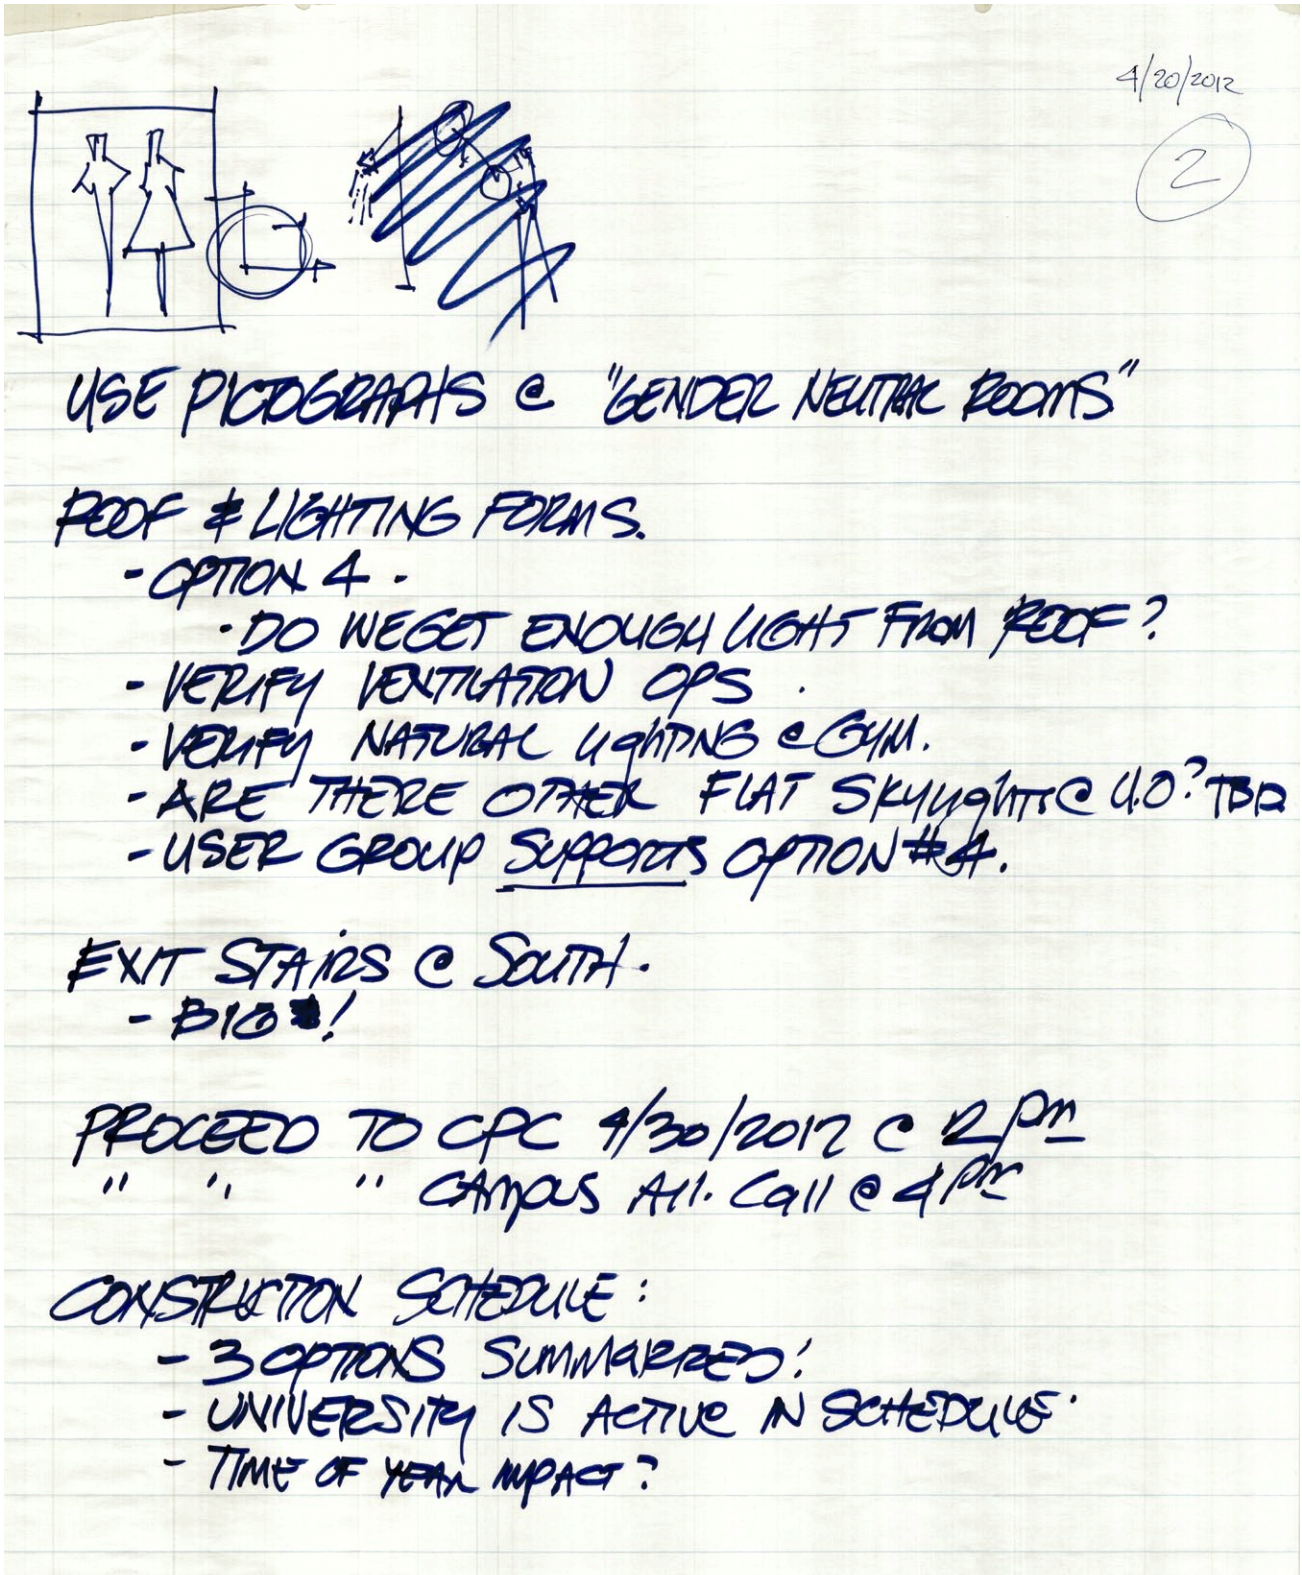 4/20/2012
2
USE PICTOGRAPHS @ "GENDER NEUTRAL ROOMS"
ROOF & LIGHTING FORMS.
- OPTION 4 -
· DO WE GET ENOUGH LIGHT FROM ROOF?
- VERIFY VENTILATION OPS.
- VERIFY NATURAL LighTING @ GYM.
- ARE THERE OTHER FLAT SKYLights @ U.O? TBD
- USER GROUP SUPPORTS OPTION #4.
EXIT STAIRS @ SOUTH.
- BIG !
PROCEED TO CPC 4/30/2012 @ 12 pm
" " " CAMPUS All. Call @ 4 pm
CONSTRUCTION SCHEDULE:
- 3 OPTIONS SUMMARIZED!
- UNIVERSITY IS ACTIVE IN SCHEDULE.
- TIME OF YEAR IMPACT?